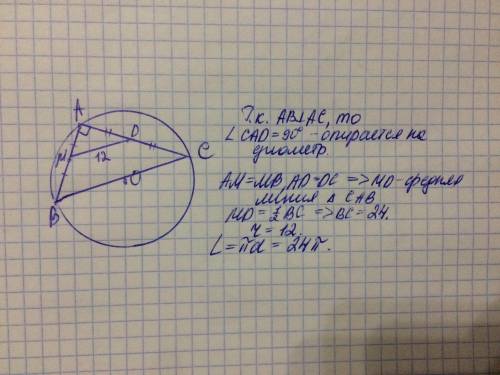 A
D
M
12
C
O
B
Т.к. AB⊥AC, то
∠CAD=90° - опирается на
диаметр.
AM=MB, AD=DC => MD - средняя
линия Δ CAB
MD = ½ BC => BC = 24.
r = 12.
L = πd = 24π.